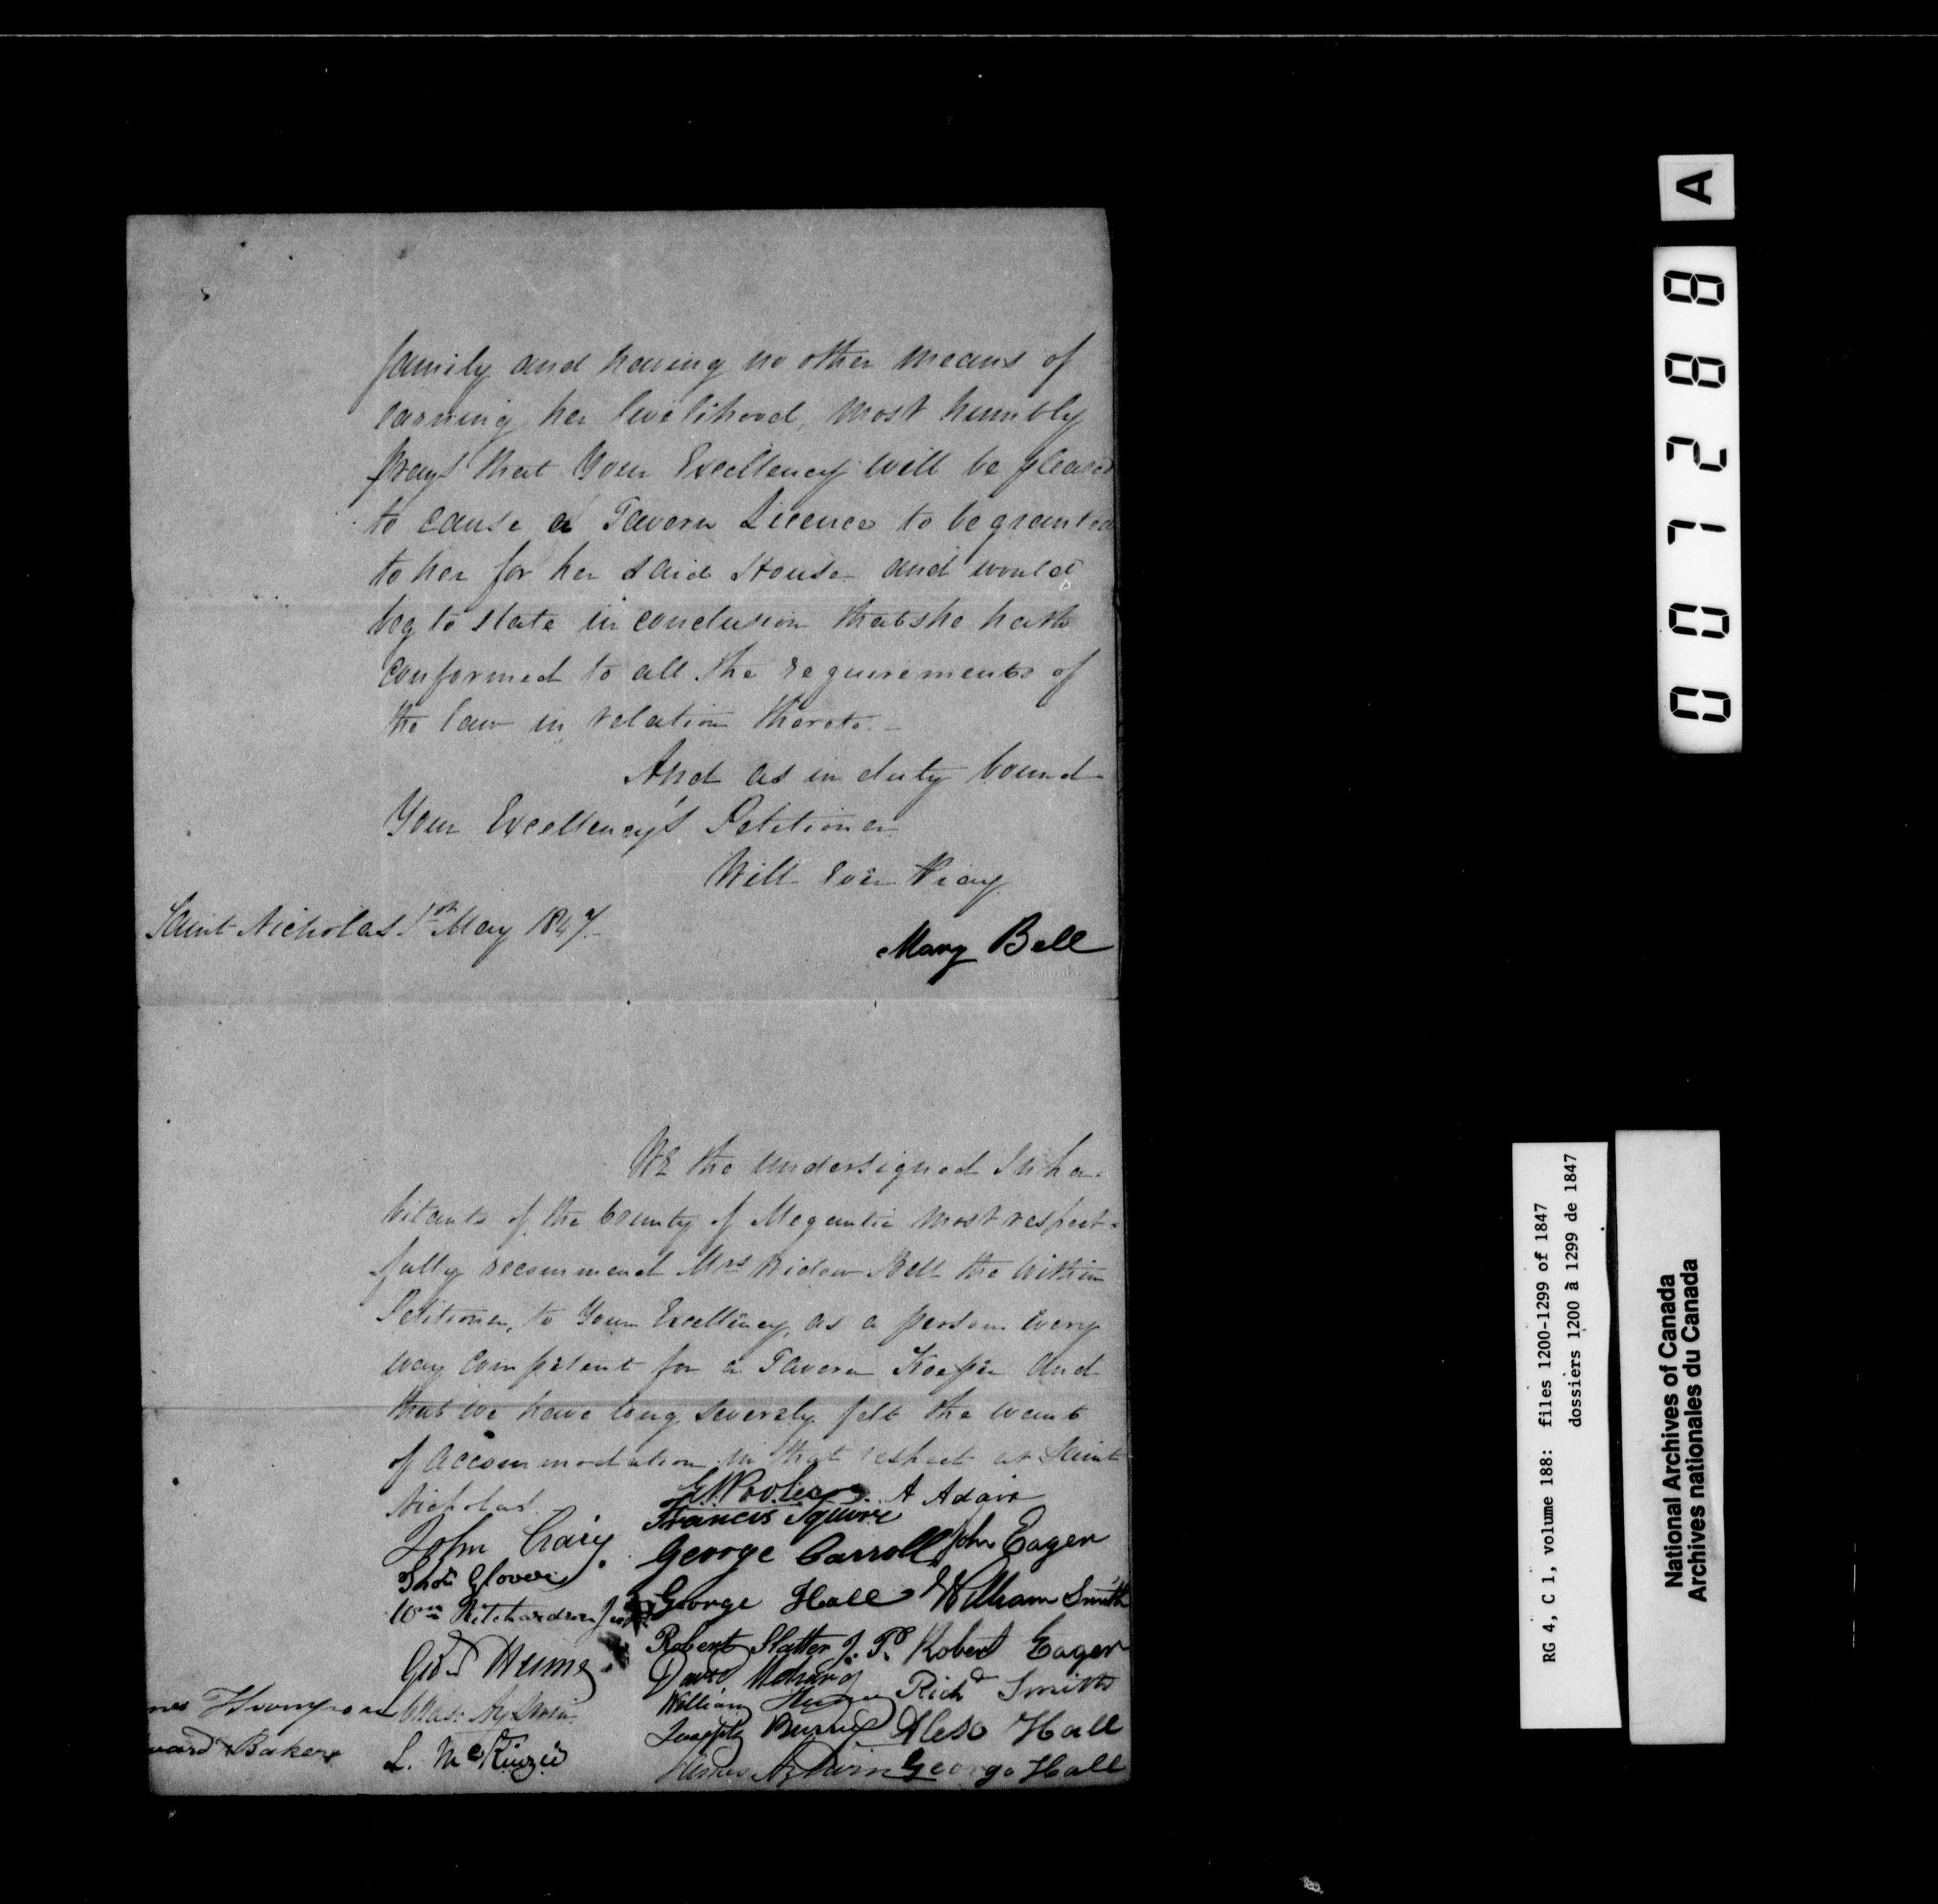 family and having no other means of
earning her livelihood, most humbly
prays that Your Excellency will be pleased
to cause a Tavern Licence to be granted
to her for her said House and would
beg to state in conclusion that she hath
conformed to all the requirements of
the law in relation thereto.
And as in duty bound
Your Excellency's Petitioner
Will ever Pray.
Saint Nicholas 1st May 1847.
Mary Bell
We the undersigned Inha-
bitants of the County of Megantic most respect-
fully recommend Mrs Widow Bell the within
Petitioner, to Your Excellency, as a person every
way competent for a Tavern Keeper and
that we have long severely felt the want
of accommodation in that respect at Saint
Nicholas
A Adair
Francis Squire
John Craig
George Carroll John Eager
Thos Glover
George Hall William Smith
Wm Ritchardson
Robert Slatter J. P. Robert Eager
Geo Hume
David
Richd Smith
William
Thompson
Joseph Alexr Hall
ward Baker
L. McKinzie
James George Hall
A
0071288
RG 4, C 1, volume 188: files 1200-1299 of 1847
dossiers 1200 à 1299 de 1847
National Archives of Canada
Archives nationales du Canada